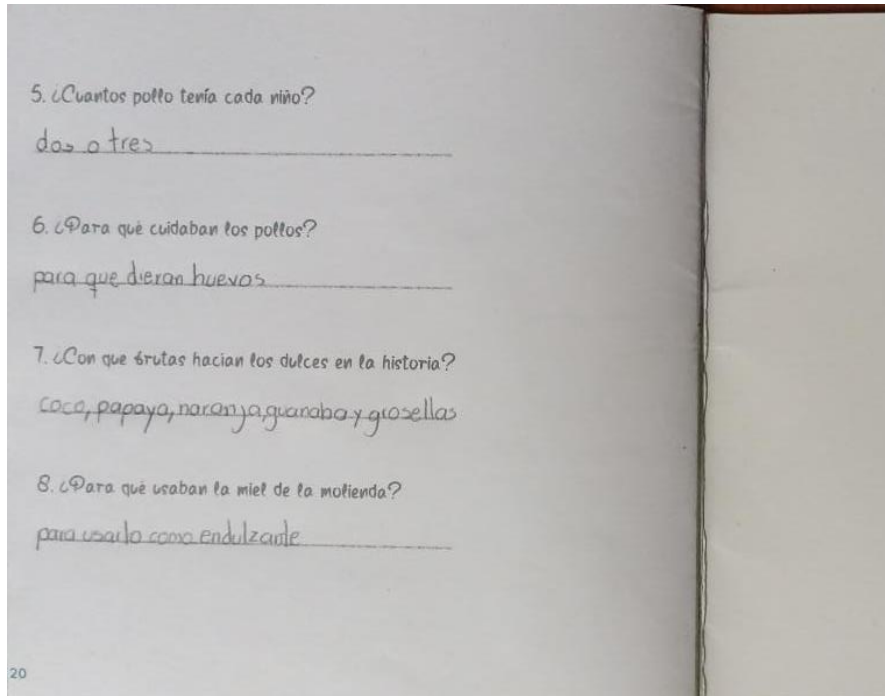 5. ¿Cuantos pollo tenía cada niño?
dos o tres
6. ¿Para qué cuidaban los pollos?
para que dieran huevos
7. ¿Con que frutas hacian los dulces en la historia?
coco, papaya, naranja, guanaba y grosellas
8. ¿Para qué usaban la miel de la molienda?
para usarlo como endulzante
20